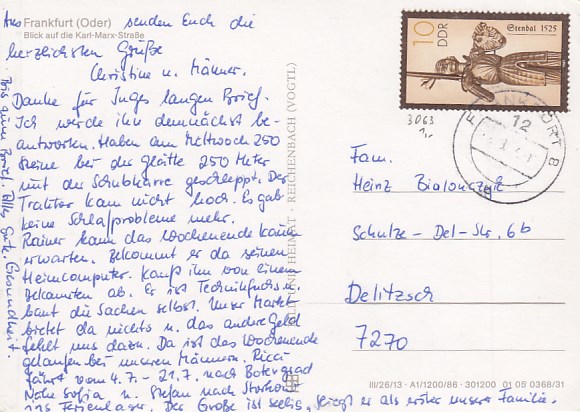 Aus Frankfurt (Oder) senden Euch die
Blick auf die Karl-Marx-Straße
herzlichsten Grüße
Christine u. Männer.
Danke für Inges langen Brief.
Ich werde ihn demnächst be-
antworten. Haben am Mittwoch 250
Steine bei der Glätte 250 Meter
mit der Schubkarre geschleppt. Der
Traktor kam nicht hoch. Es gab
keine Schlafprobleme mehr.
Rainer kann das Wochenende kaum
erwarten. Bekommt er da seinen
Heimcomputer. Kauft ihn von einem
Bekannten ab. Er ist Technikfreis u.
baut die Sachen selbst. Unser Markt
bietet da nichts u. das andere Geld
fehlt uns dazu. Da ist das Wochenende
gelaufen bei unseren Männern. Ricci
fährt vom 4.7. - 21.7. nach
Nähe Sofia u. Stefan nach Storkow
ins Ferienlager. Der Große ist selig, fliegt er als erster unserer Familie.
Bis zum Brief. Alles Gute. Gesundheit.
REICHENBACH (VOGTL)
10
DDR
Stendal 1525
3063
1,-
FRANKFURT 8
12
Fam.
Heinz
Schulze-Del-Str. 6b
Delitzsch
7270
III/26/13 · A1/1200/86 · 301200 01 05 0368/31